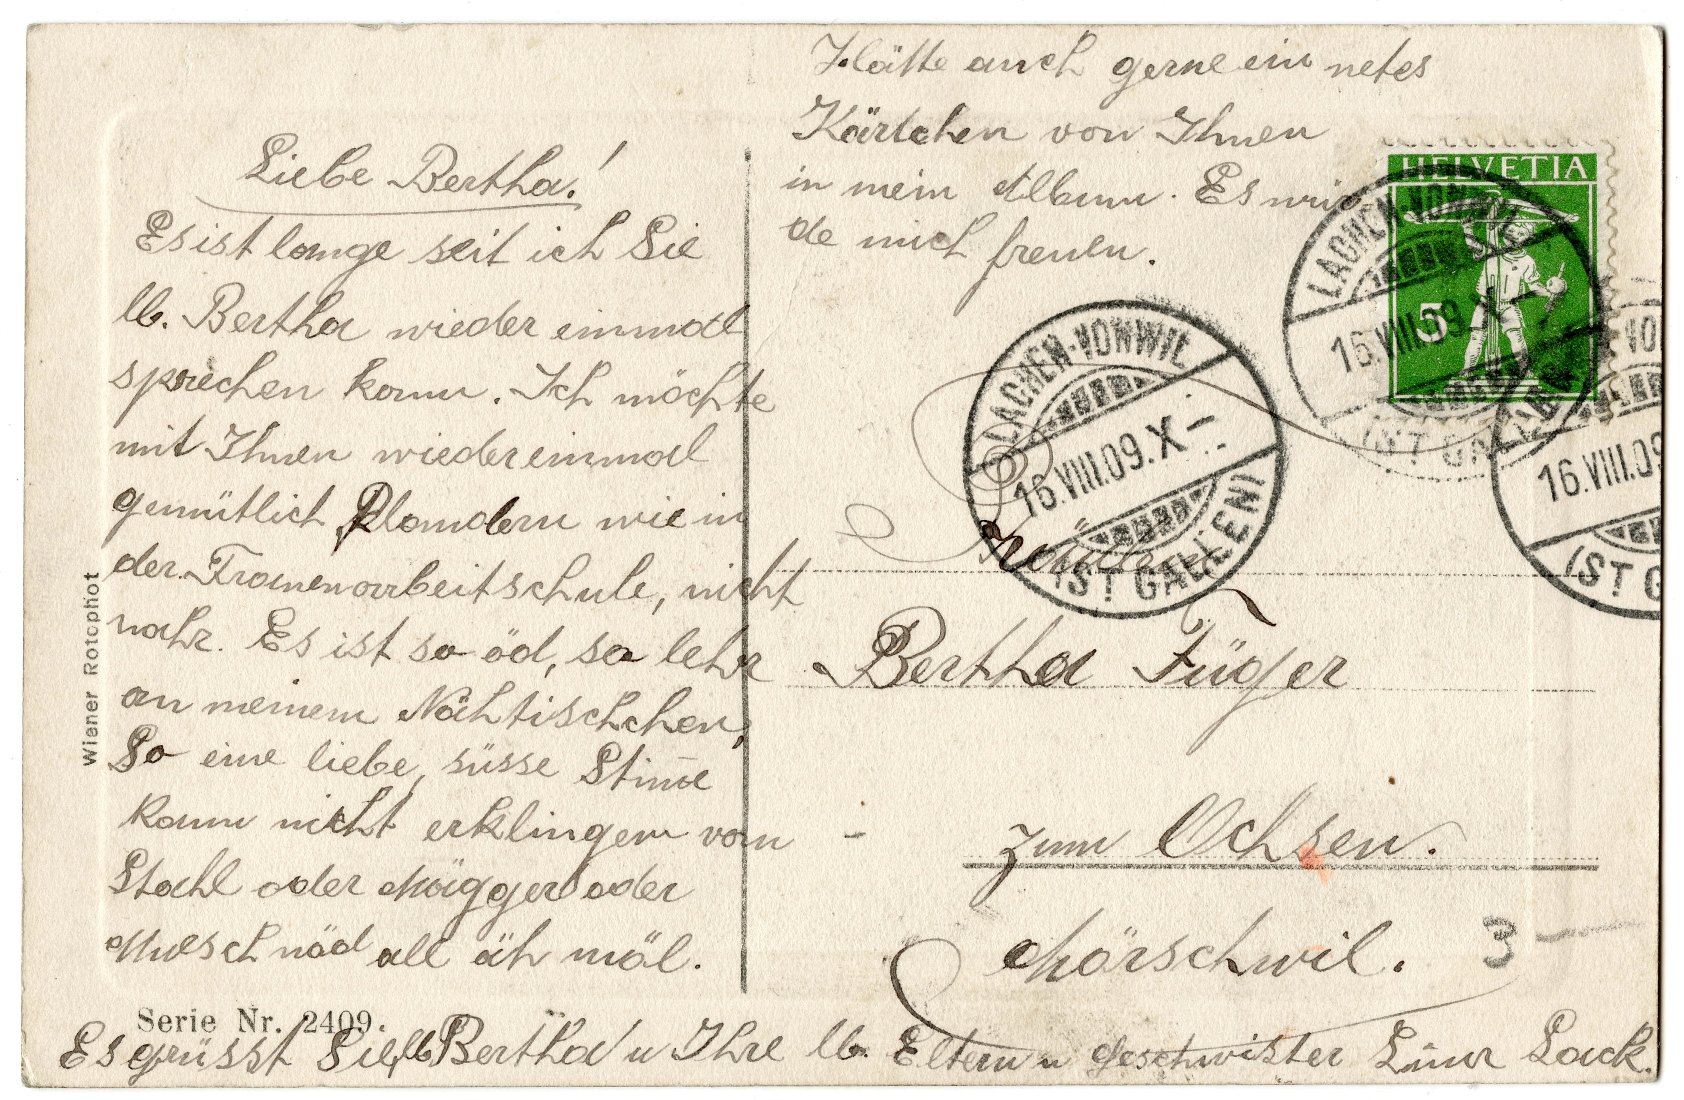 Liebe Bertha!
Es ist lange seit ich Sie
lb. Bertha wieder einmal
sprechen kann. Ich möchte
mit Ihnen wiedereinmal
gemütlich Plaudern wie in
der Frauenarbeitschule, nicht
wahr. Es ist so öd, so lehr
an meinem Nähtischchen,
So eine liebe, süsse Stim̅e
kann nicht erklingen von
Stahl oder Mägger oder
Muesch näd all äh mäl.
Es grüsst Sie, lb Bertha u Ihre lb. Eltern u Geschwister Lina Lack.
Hätte auch gerne ein netes
Kärtchen von Ihnen
in mein Album. Es wür
de mich freuen.
HELVETIA
5
LACHEN-VONWIL
16.VIII.09.X-
(ST GALLEN)
LACHEN-VONWIL
16.VIII.09.X-
(ST GALLEN)
16.VIII.09
(ST G
Fräulein
Bertha Füger
zum Ochsen.
Mörschwil.
3
Wiener Rotophot
Serie Nr. 2409.